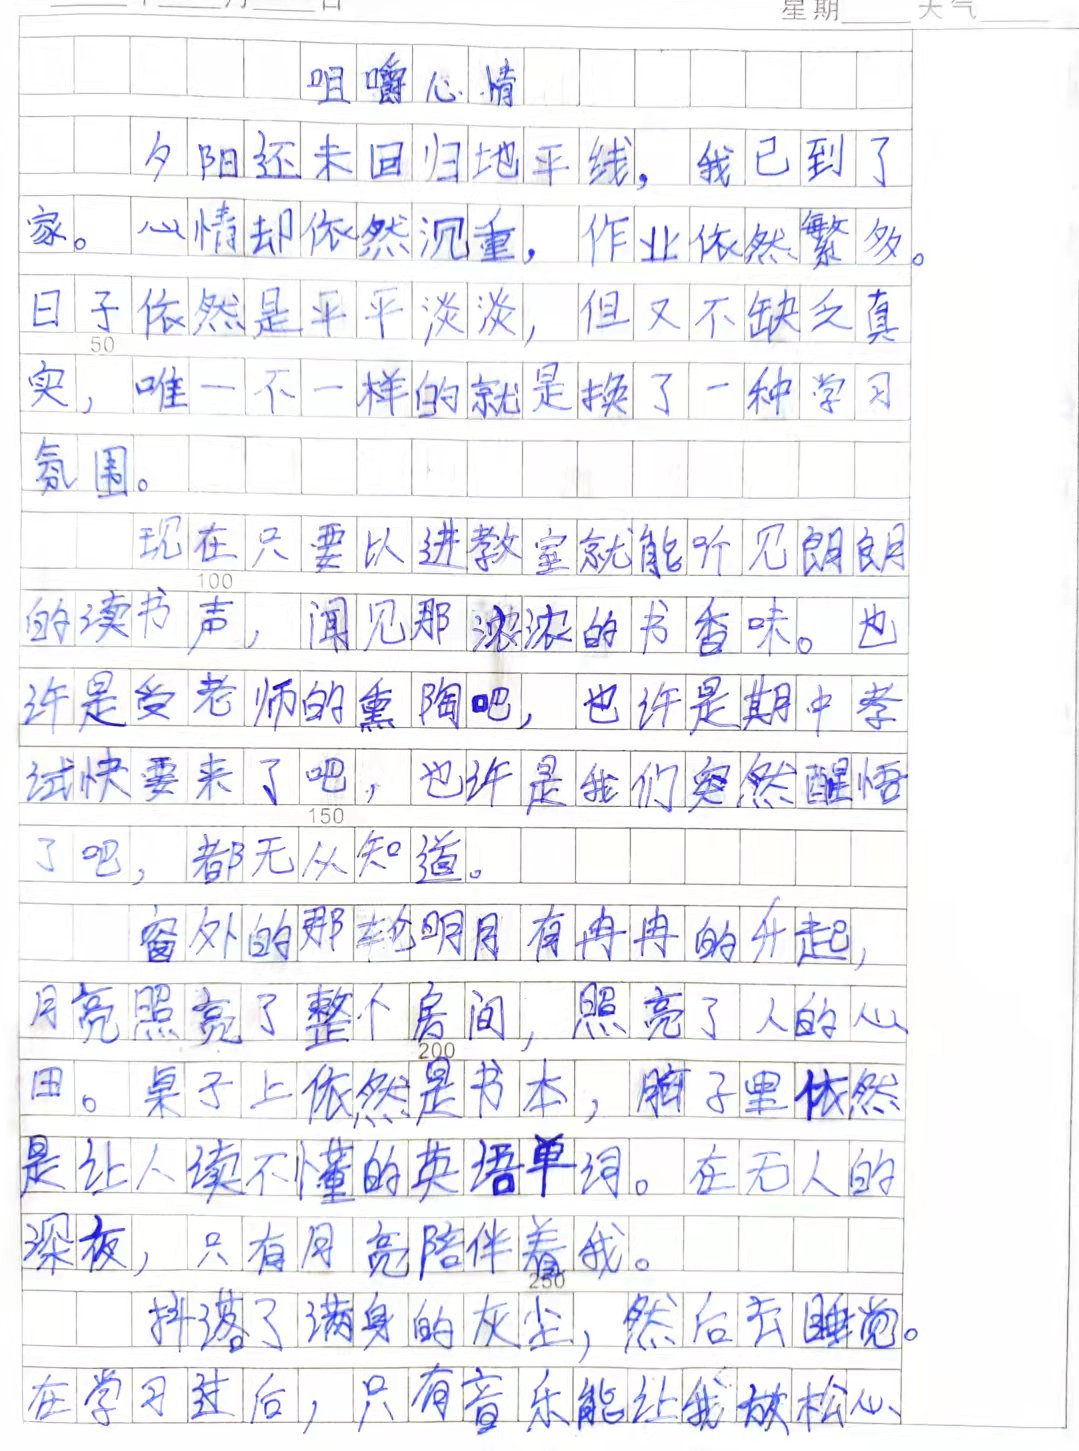 年 月 日 星期 天气
咀嚼心情
夕阳还未回归地平线，我已到了
家。心情却依然沉重，作业依然繁多。
日子依然是平平淡淡，但又不缺乏真
50
实，唯一不一样的就是换了一种学习
氛围。
现在只要以进教室就能听见朗朗
100
的读书声，闻见那浓浓的书香味。也
许是受老师的熏陶吧，也许是期中考
试快要来了吧，也许是我们突然醒悟
150
了吧，都无从知道。
窗外的那轮明月有冉冉的升起，
月亮照亮了整个房间，照亮了人的心
200
田。桌子上依然是书本，脑子里依然
是让人读不懂的英语单词。在无人的
深夜，只有月亮陪伴着我。
250
抖落了满身的灰尘，然后去睡觉。
在学习过后，只有音乐能让我放松心